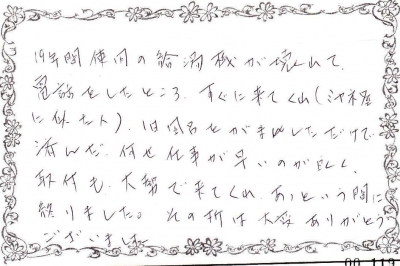 19年間使用の給湯機が壊れて、
電話をしたところ、すぐに来てくれ(
に似た人)、1日風呂をがまんしただけで
済んだ。何せ仕事が早いのが良く、
取付も、大勢で来てくれ、あっという間に
終りました。その折は大変ありがとう
ございました
00 119